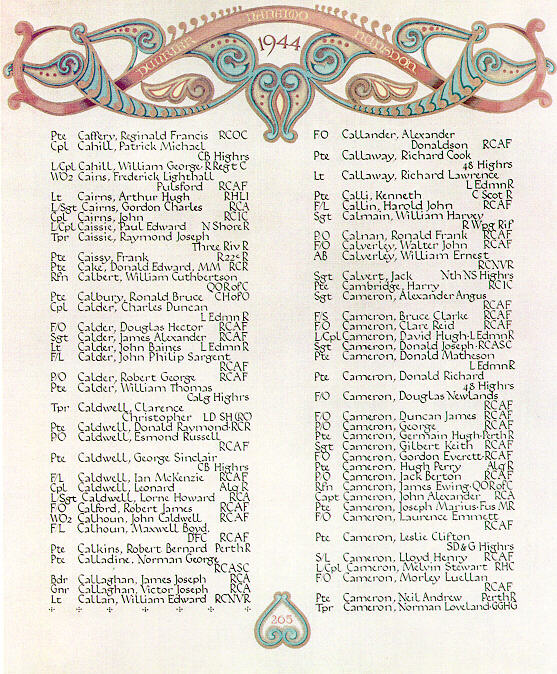 DUNKIRK NANAIMO NAPADOGAN
1944
Pte Caffery, Reginald Francis RCOC
Cpl Cahill, Patrick Michael
CB Highrs
L/Cpl Cahill, William George R Regt C
WO2 Cains, Frederick Lighthall
Pulsford RCAF
Lt Cairns, Arthur Hugh RHLI
L/Sgt Cairns, Gordon Charles RCA
Cpl Cairns, John RCIC
L/Cpl Caissie, Paul Edward N Shore R
Tpr Caissie, Raymond Joseph
Three Riv R
Pte Caissy, Frank R22eR
Pte Cake, Donald Edward, MM RCR
Rfn Calbert, William Cuthbertson
QOR of C
Pte Calbury, Ronald Bruce CH of O
Cpl Calder, Charles Duncan
L Edmn R
F/O Calder, Douglas Hector RCAF
Sgt Calder, James Alexander RCAF
Lt Calder, John Baines L Edmn R
F/L Calder, John Philip Sargent
RCAF
P/O Calder, Robert George RCAF
Pte Calder, William Thomas
Calg Highrs
Tpr Caldwell, Clarence
Christopher LD SH (RC)
Pte Caldwell, Donald Raymond RCR
P/O Caldwell, Esmond Russell
RCAF
Pte Caldwell, George Sinclair
CB Highrs
F/L Caldwell, Ian McKenzie RCAF
Cpl Caldwell, Leonard Alq R
L/Sgt Caldwell, Lorne Howard RCA
F/O Calford, Robert James RCAF
WO2 Calhoun, John Caldwell RCAF
F/L Calhoun, Maxwell Boyd,
DFC RCAF
Pte Calkins, Robert Bernard Perth R
Pte Calladine, Norman George
RCASC
Bdr Callaghan, James Joseph RCA
Gnr Callaghan, Victor Joseph RCA
Lt Callan, William Edward RCNVR
F/O Callander, Alexander
Donaldson RCAF
Pte Callaway, Richard Cook
48 Highrs
Lt Callaway, Richard Lawrence
L Edmn R
Pte Calli, Kenneth C Scot R
F/L Callin, Harold John RCAF
Sgt Calmain, William Harvey
R Wpg Rif
P/O Calnan, Ronald Frank RCAF
F/O Calverley, Walter John RCAF
AB Calverley, William Ernest
RCNVR
Sgt Calvert, Jack Nth NS Highrs
Pte Cambridge, Harry RCIC
Sgt Cameron, Alexander Angus
RCAF
F/S Cameron, Bruce Clarke RCAF
F/O Cameron, Clare Reid RCAF
L/Cpl Cameron, David Hugh L Edmn R
Sgt Cameron, Donald Joseph RCASC
Pte Cameron, Donald Matheson
L Edmn R
Pte Cameron, Donald Richard
48 Highrs
F/O Cameron, Douglas Newlands
RCAF
F/O Cameron, Duncan James RCAF
P/O Cameron, George RCAF
Pte Cameron, Germain Hugh Perth R
Sgt Cameron, Gilbert Keith RCAF
F/O Cameron, Gordon Everett RCAF
Pte Cameron, Hugh Perry Alq R
P/O Cameron, Jack Berton RCAF
Rfn Cameron, James Ewing QOR of C
Capt Cameron, John Alexander RCA
Pte Cameron, Joseph Marius Fus MR
F/O Cameron, Laurence Emmett
RCAF
Pte Cameron, Leslie Clifton
SD&G Highrs
S/L Cameron, Lloyd Henry RCAF
L/Cpl Cameron, Melvin Stewart RHC
F/O Cameron, Morley Luellan
RCAF
Pte Cameron, Neil Andrew Perth R
Tpr Cameron, Norman Loveland GGHG
265